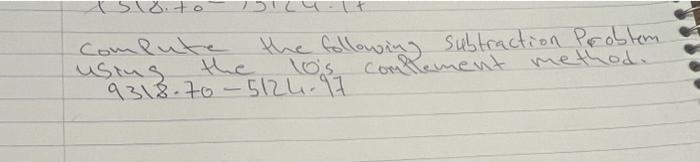 Compute the following subtraction Problem
using the 10's complement method.
9318.70 - 5124.97